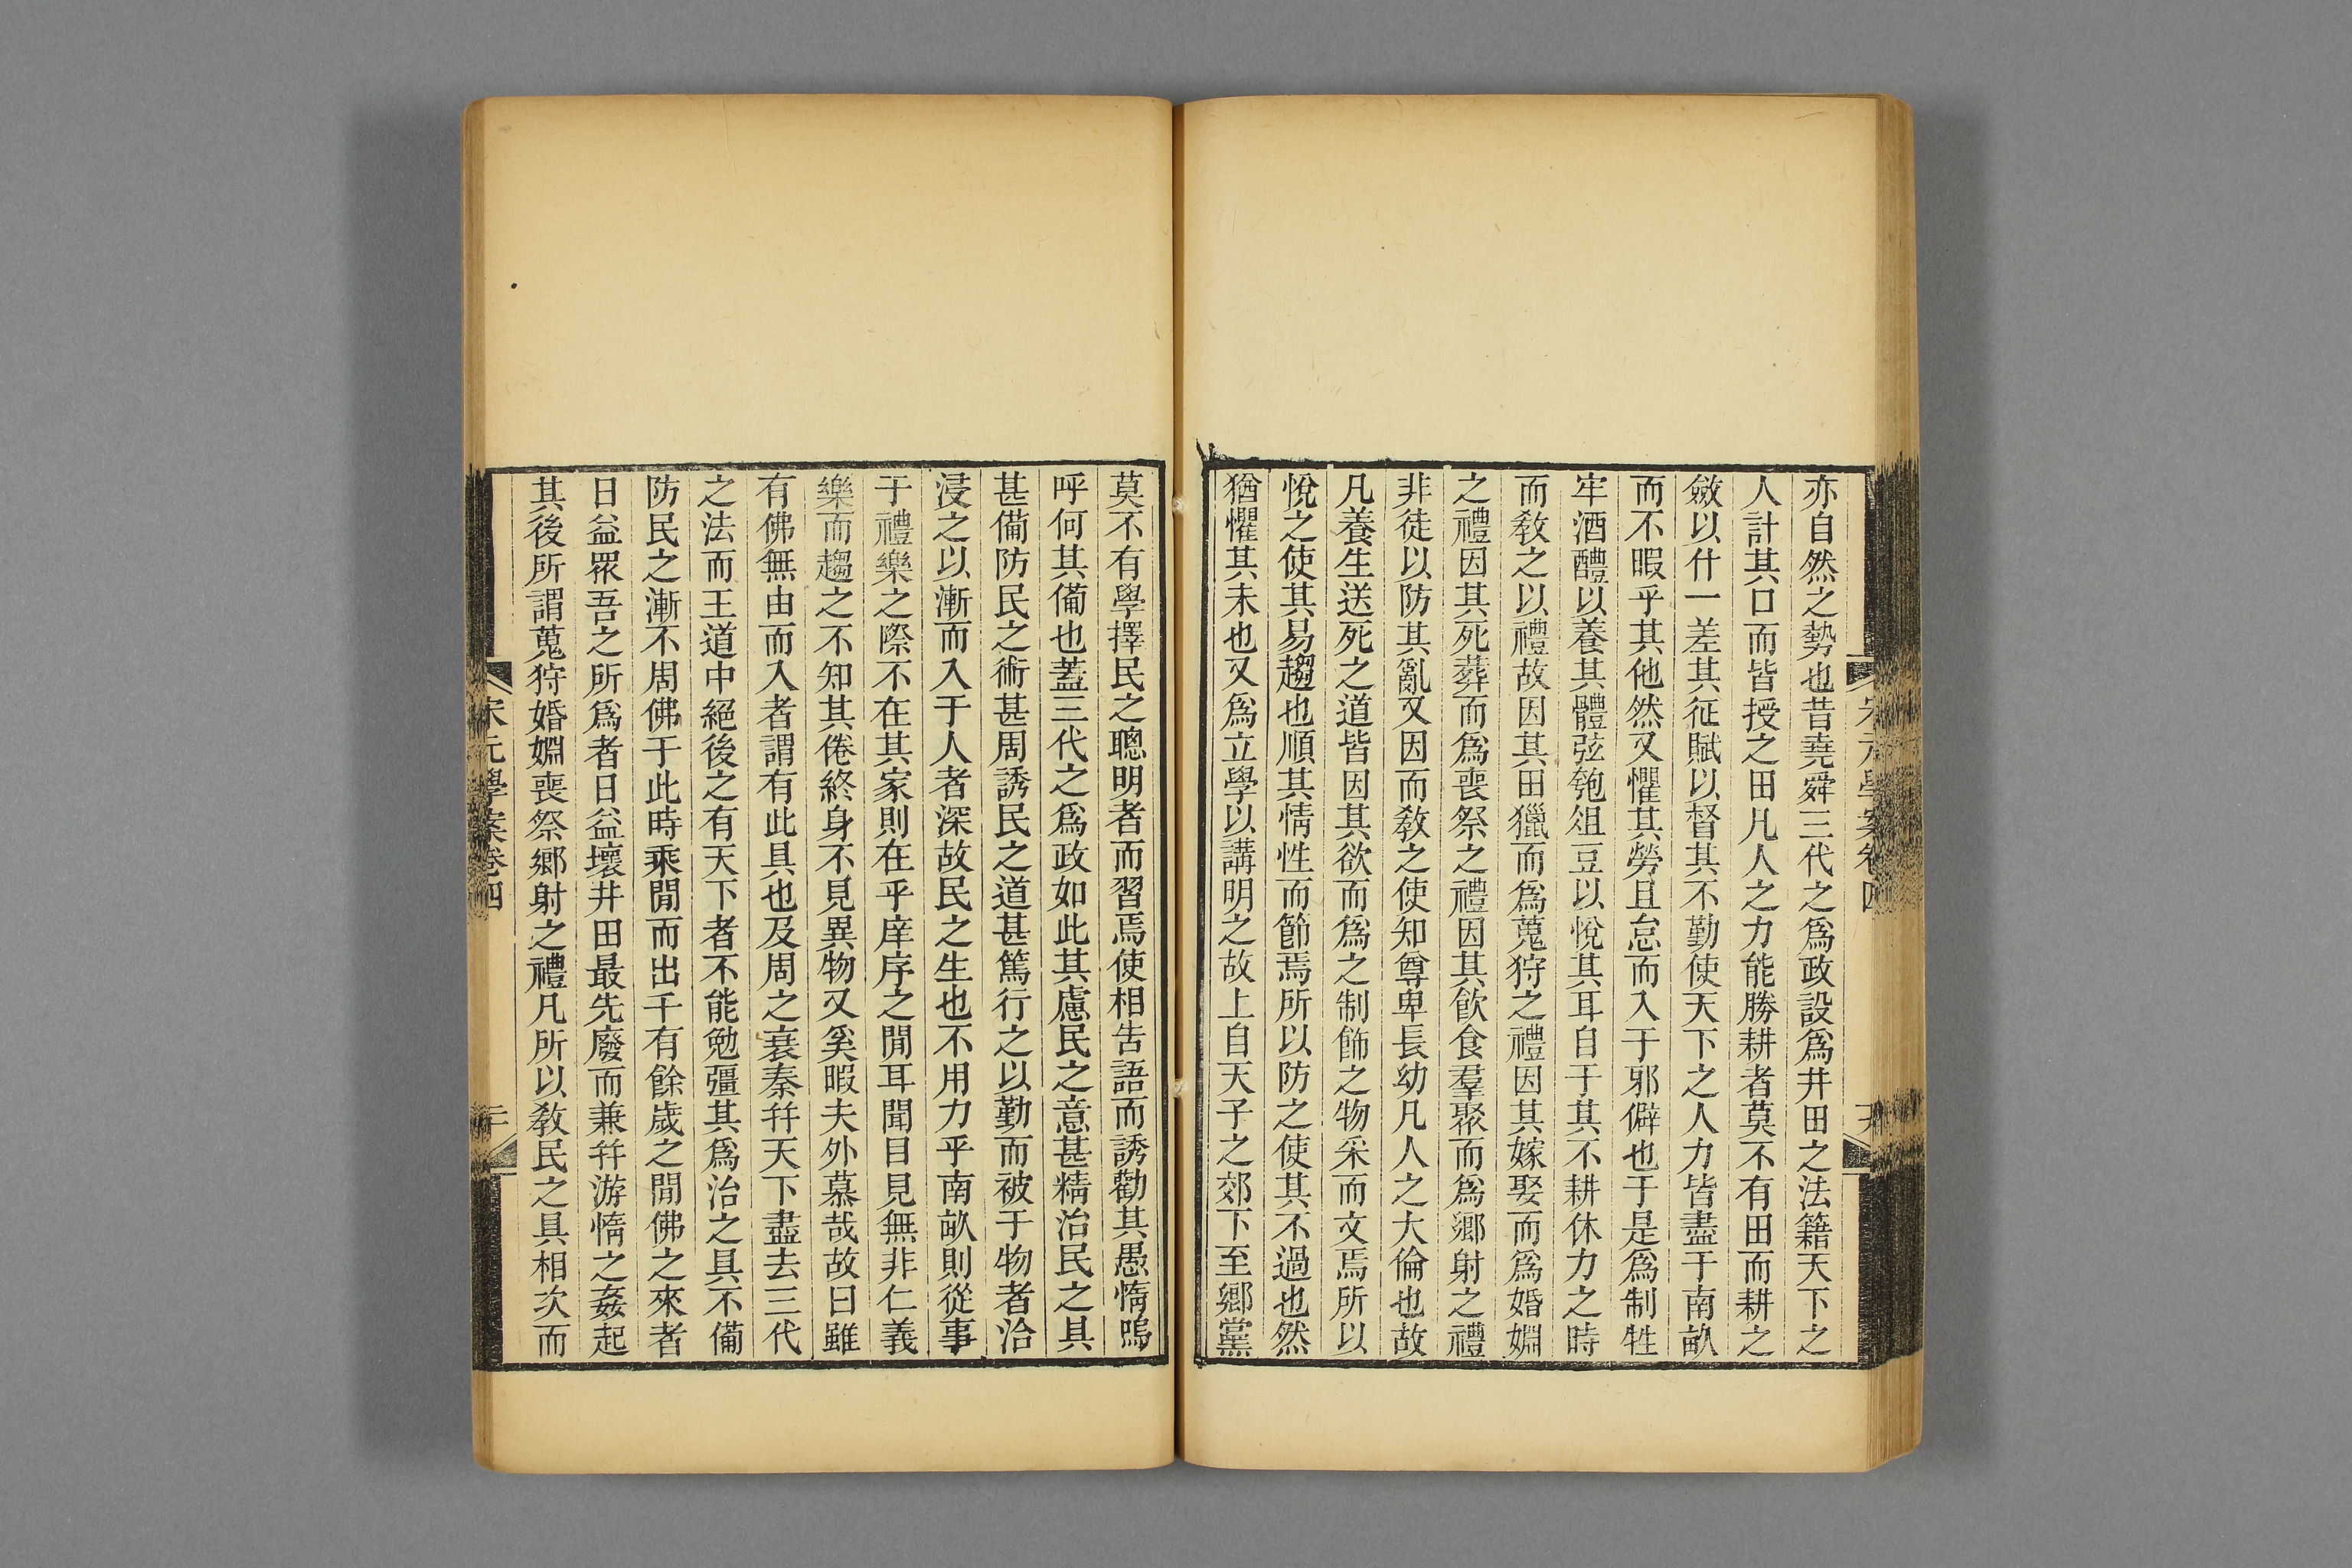 亦自然之勢也昔堯舜三代之爲政設爲井田之法籍天下之
人計其口而皆授之田凡人之力能勝耕者莫不有田而耕之
斂以什一差其征賦以督其不勤使天下之人力皆盡于南畝
而不暇乎其他然又懼其勞且怠而入于邪僻也于是爲制牲
牢酒醴以養其體弦匏俎豆以悅其耳目于其不耕休力之時
而敎之以禮故因其田獵而爲蒐狩之禮因其嫁娶而爲婚姻
之禮因其死葬而爲喪祭之禮因其飮食羣聚而爲鄉射之禮
非徒以防其亂又因而敎之使知尊卑長幼凡人之大倫也故
凡養生送死之道皆因其欲而爲之制飾之物采而文焉所以
悅之使其易趨也順其情性而節焉所以防之使其不過也然
猶懼其未也又爲立學以講明之故上自天子之郊下至鄉黨
莫不有學擇民之聰明者而習焉使相告語而誘勸其愚惰嗚
呼何其備也蓋三代之爲政如此其慮民之意甚精治民之具
甚備防民之術甚周誘民之道甚篤行之以勤而被于物者洽
浸之以漸而入于人者深故民之生也不用力乎南畝則從事
于禮樂之際不在其家則在乎庠序之閒耳聞目見無非仁義
樂而趨之不知其倦終身不見異物又奚暇夫外慕哉故曰雖
有佛無由而入者謂有此具也及周之衰秦幷天下盡去三代
之法而王道中絕後之有天下者不能勉彊其爲治之具不備
防民之漸不周佛于此時乘閒而出千有餘歲之閒佛之來者
日益眾吾之所爲者日益壞井田最先廢而兼幷游惰之姦起
其後所謂蒐狩婚姻喪祭鄉射之禮凡所以敎民之具相次而
宋元學案卷四